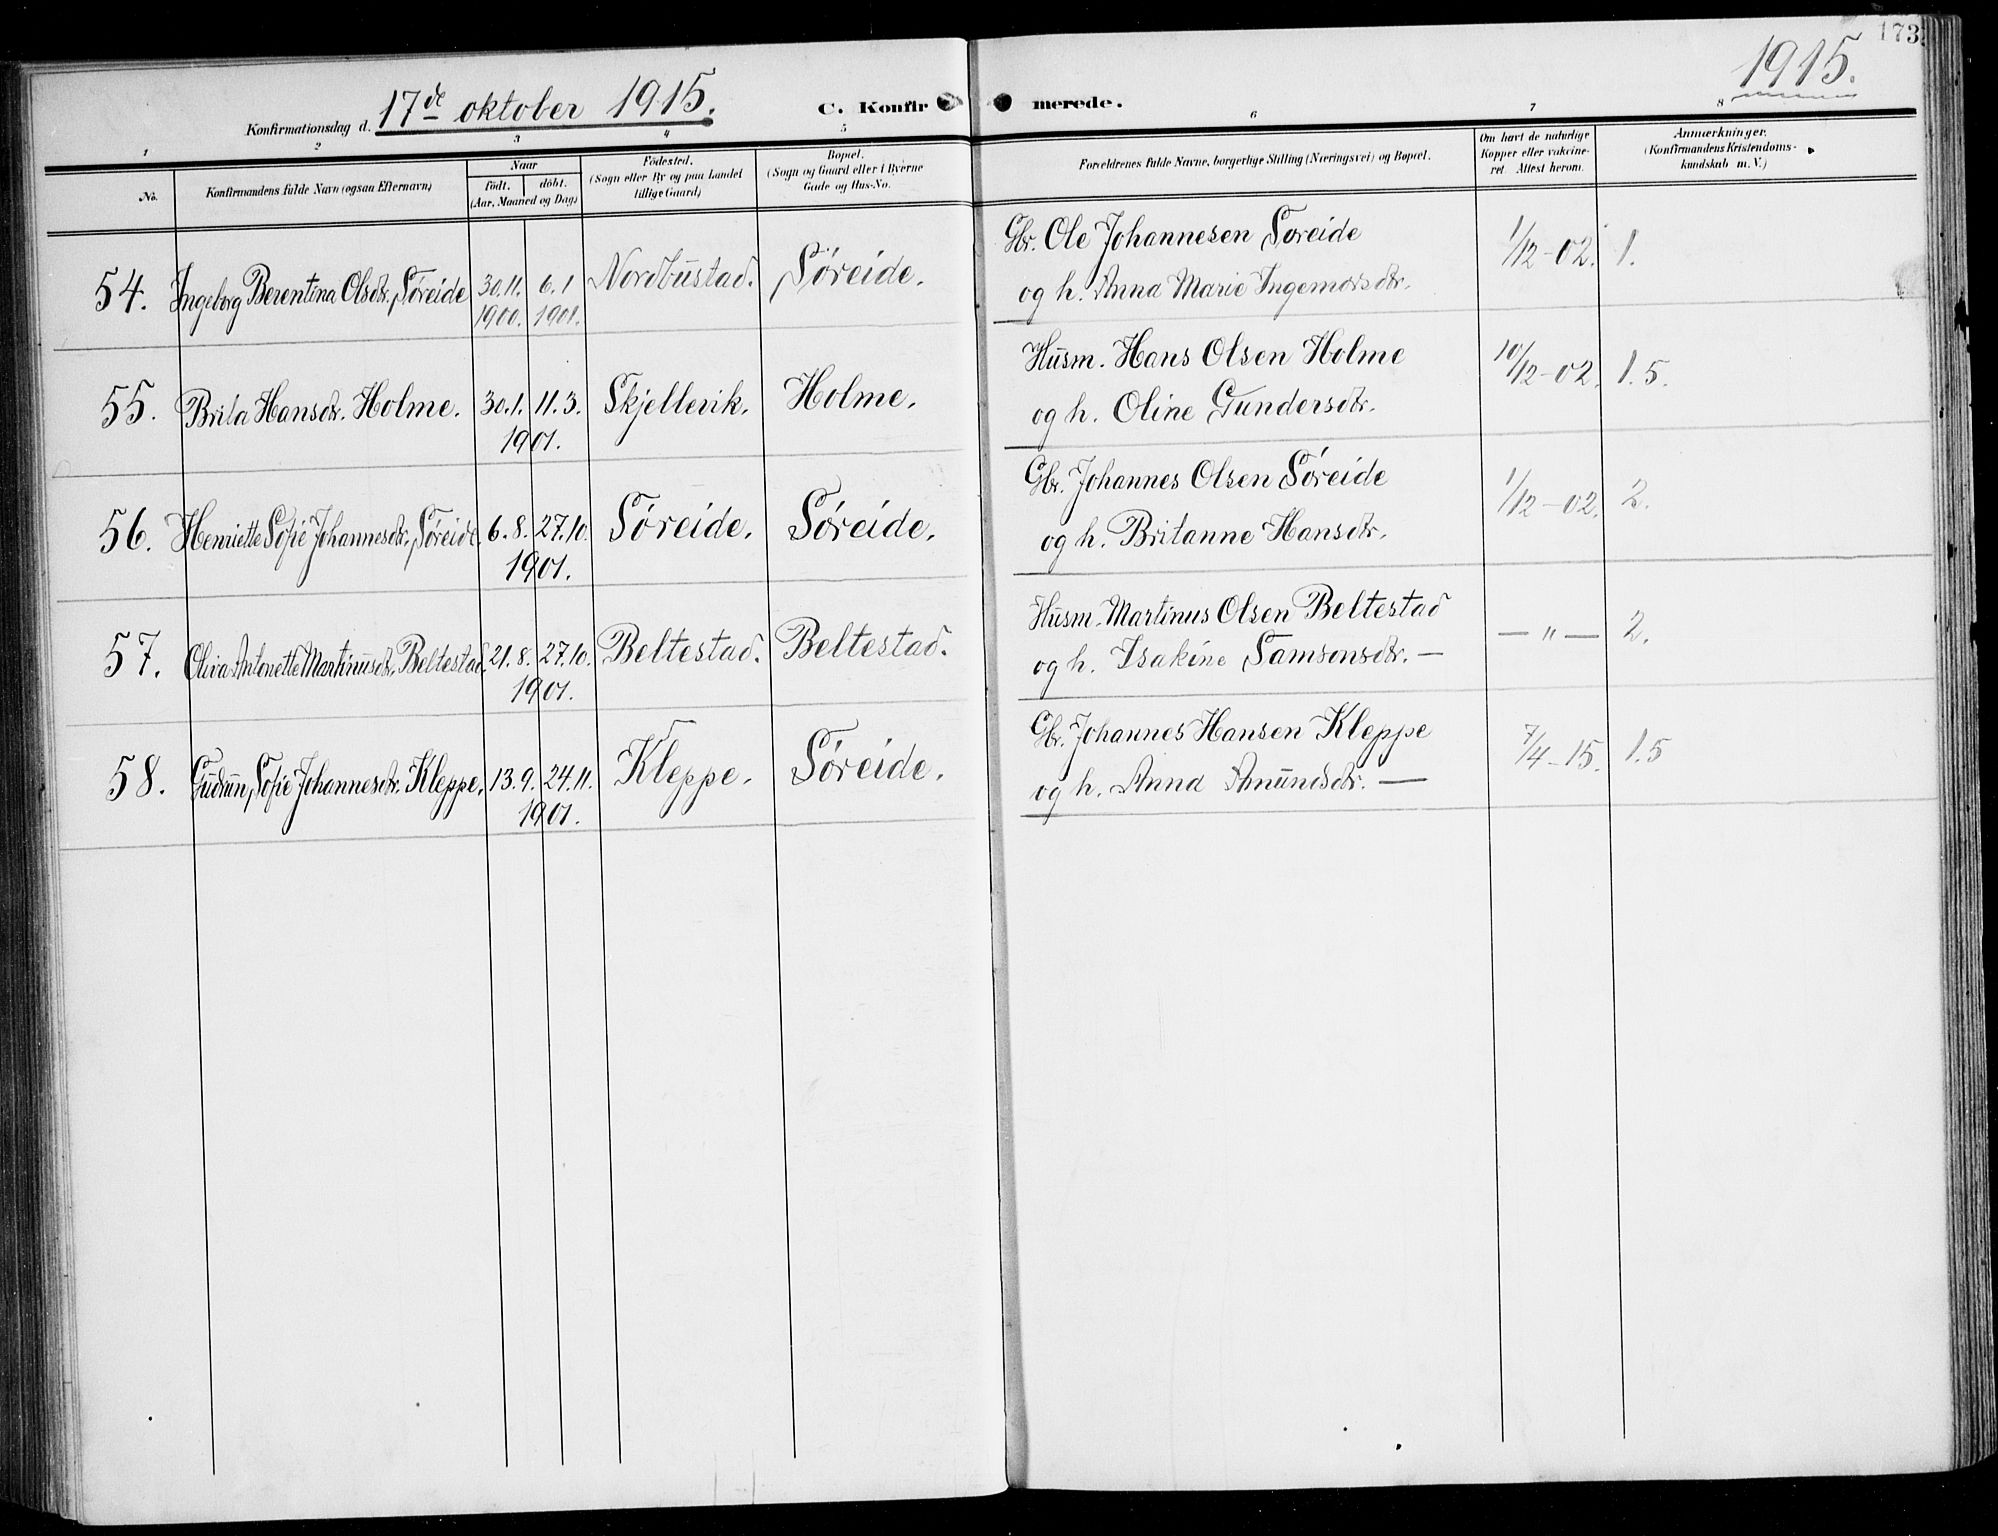 173
1915.
Konfirmationsdag d. 17de oktober 1915. C. Konfirmerede.
1 2 3 4 5 6 7 8
No. Konfirmandens fulde Navn (ogsaa Efternavn) Naar født. døbt. (Aar, Maaned og Dag) Fødested. (Sogn eller By og paa Landet tillige Gaard) Bopæl. (Sogn og Gaard eller i Byerne Gade og Hus-No. Forældrenes fulde Navne, borgerlige Stilling (Næringsvei) og Bopæl. Om havt de naturlige Kopper eller vakcineret. Attest herom. Anmærkninger. (Konfirmandens Kristendomskundskab m. V.)
54. Ingeborg Berentina Olsdtr. Søreide 30.11. 1900. 6.1 1901. Nordbustad. Søreide. Gbr. Ole Johannesen Søreide 1/12-02. 1.
og h. Anna Marie Ingemorsdtr.
55. Brita Hansdtr. Holme. 30.1. 11.3. Skjellevik. Holme. Husm. Hans Olsen Holme 10/12-02. 1.5.
1901. og h. Oline Gundersdtr.
56. Henriette Sofie Johannesdtr. Søreide. 6.8. 27.10. Søreide. Søreide. Gbr. Johannes Olsen Søreide 1/12-02. 2.
1901. og h. Britanne Hansdtr.
57. Olivia Antonette Martinusdtr. Beltestad. 21.8. 27.10. Beltestad. Beltestad. Husm. Martinus Olsen Beltestad — " — 2.
1901. og h. Isakine Samsonsdtr. —
58. Gudrun, Sofie Johannesdtr. Kleppe. 13.9. 24.11. Kleppe. Søreide. Gbr. Johannes Hansen Kleppe 7/4-15. 1.5
1901. og h. Anna Amundsdtr. —